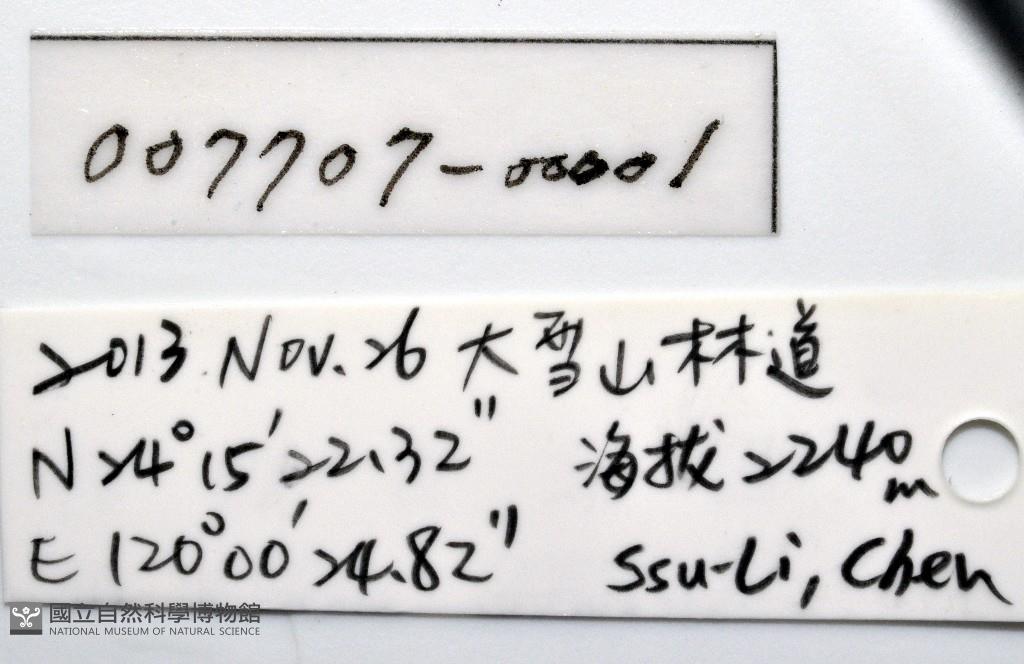 007707-00001
2013.Nov.26 大雪山林道
N24°15'22.32" 海拔2240m
E120°00'24.82" Ssu-Li, Chen
國立自然科學博物館
NATIONAL MUSEUM OF NATURAL SCIENCE